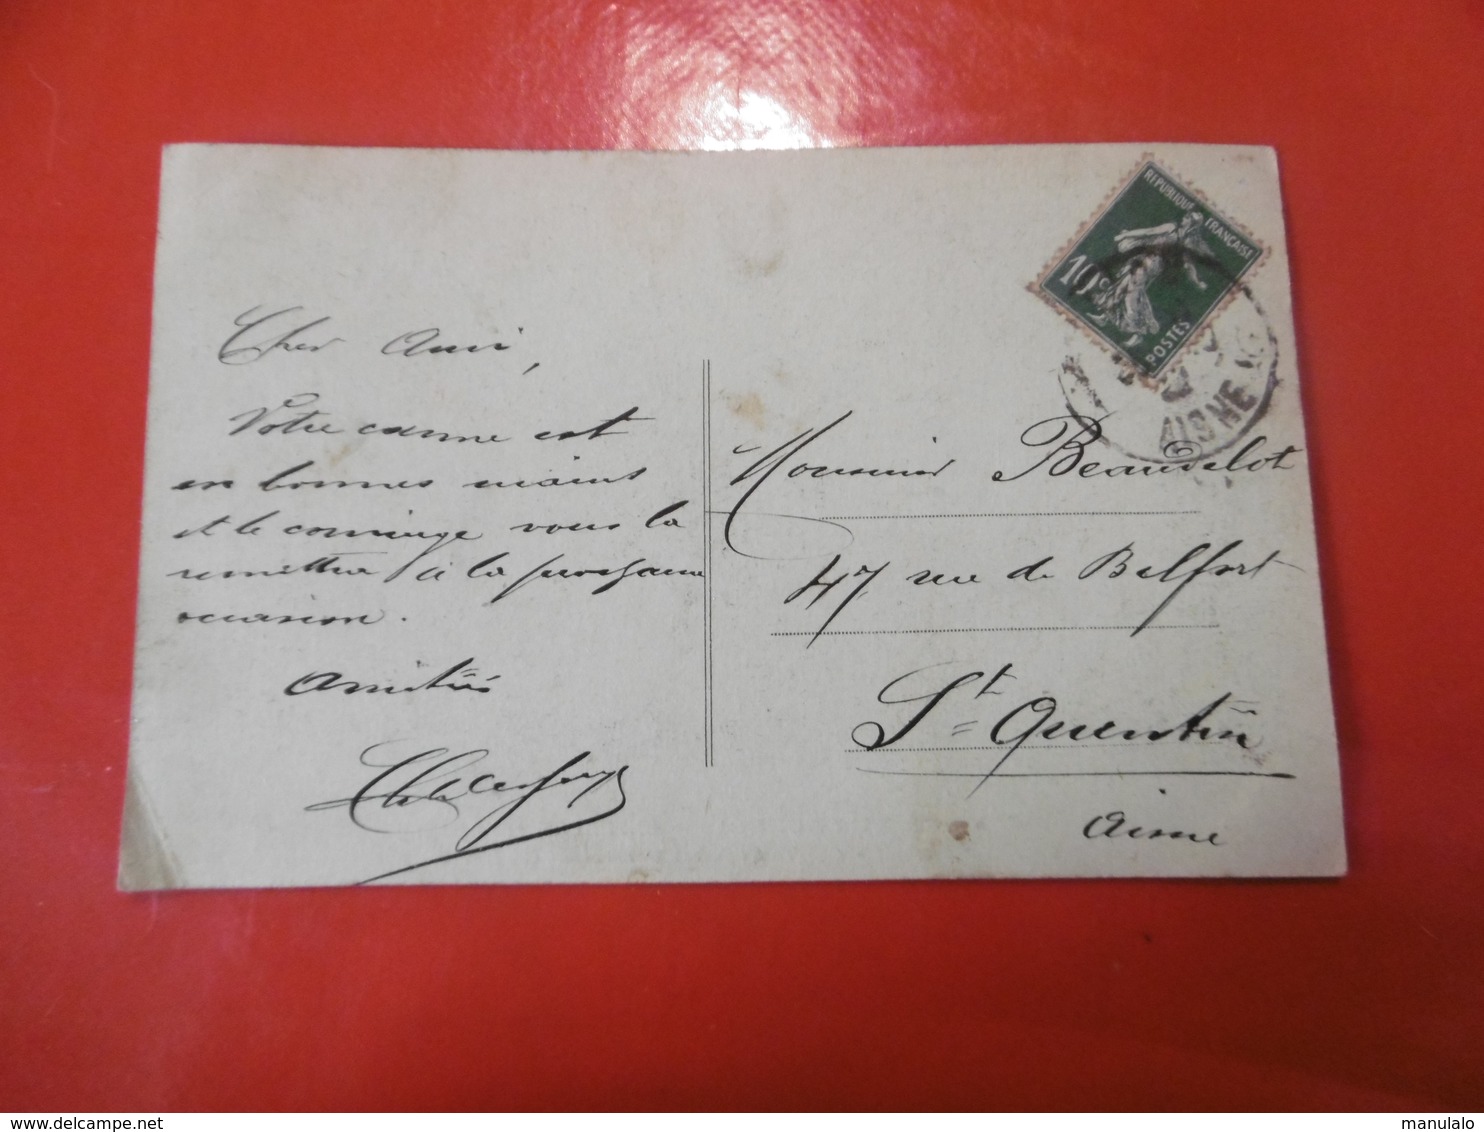 Cher Ami,
Votre canne est
en bonnes mains
et le concierge vous la
remettra à la prochaine
occasion.
Amitiés
RÉPUBLIQUE FRANÇAISE
10c
POSTES
AISNE
Monsieur Beaudelot
47, rue de Belfort
St Quentin
Aisne
delcampe.net
manulalo